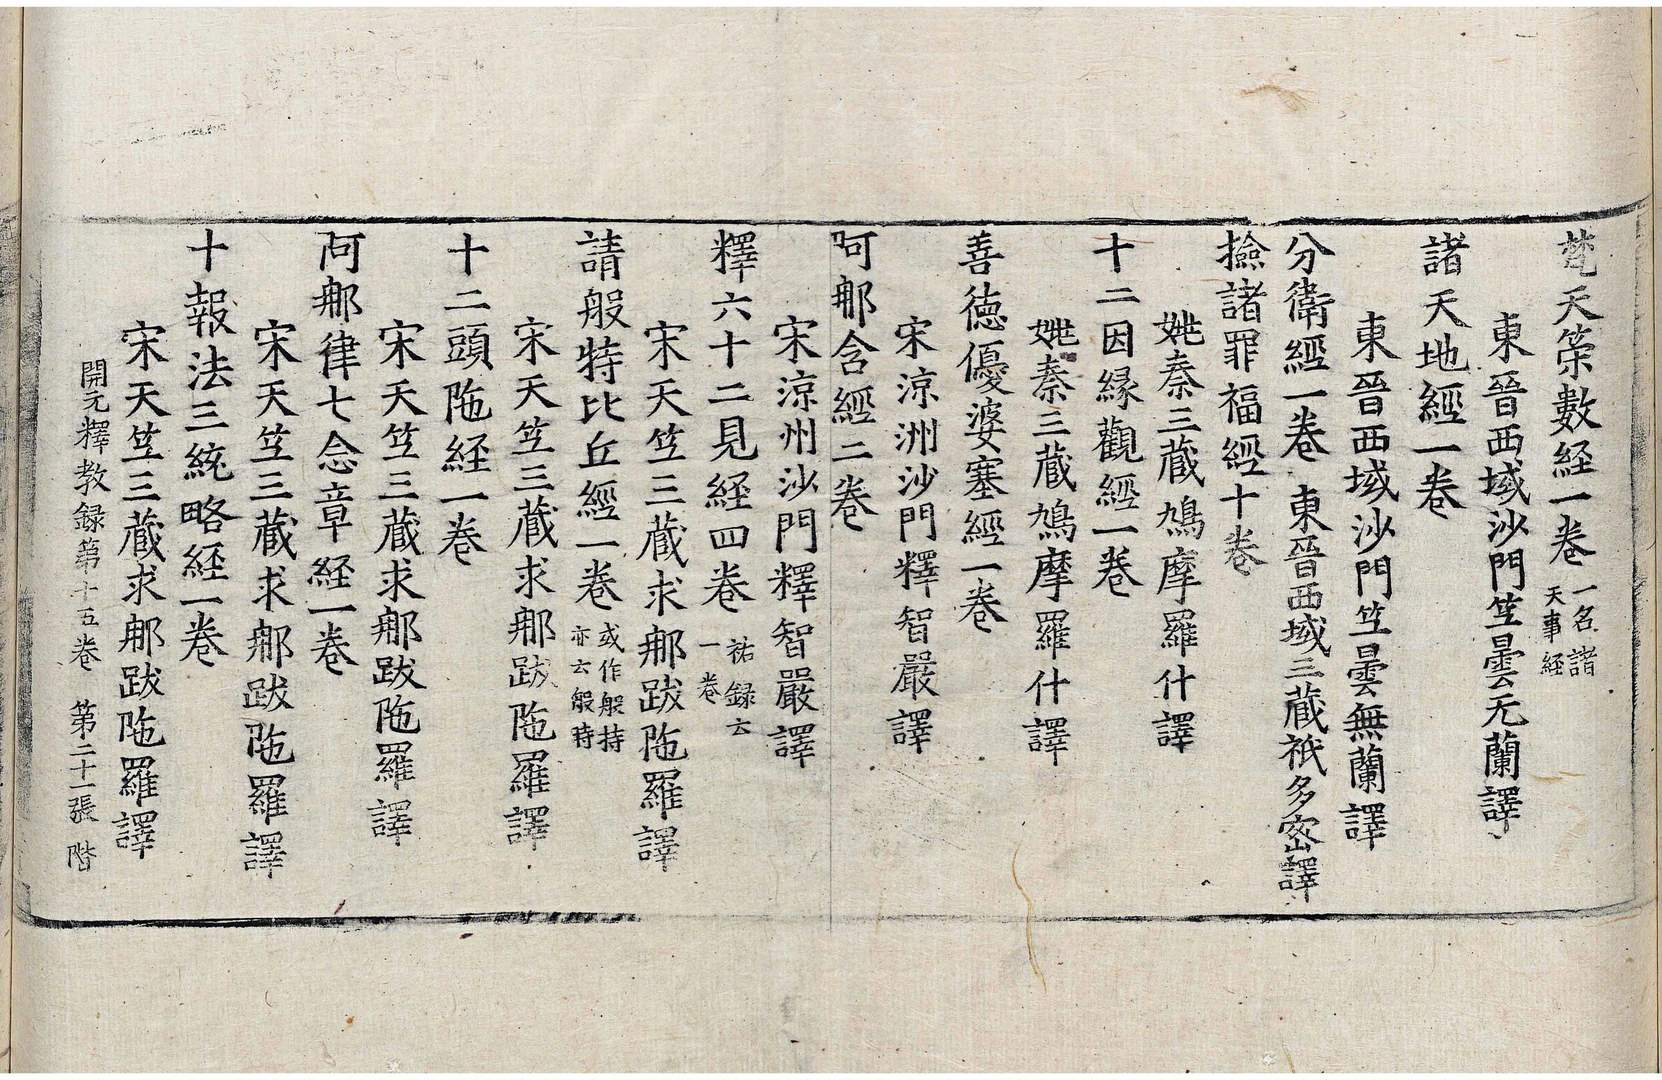 梵天䇿數経一卷 一名諸天事経
東晉西域沙門笁曇无蘭譯
諸天地經一卷
東晉西域沙門笁曇無蘭譯
分衛經一卷 東晉西域三藏祇多宻譯
撿諸罪福經十卷
姚秦三藏鳩摩羅什譯
十二因縁觀經一卷
姚秦三藏鳩摩羅什譯
善徳優婆塞經一卷
宋涼洲沙門釋智嚴譯
阿那含經二卷
宋涼州沙門釋智嚴譯
釋六十二見経四卷 祐録云一卷
宋天笁三藏求那跋陁羅譯
請般特比丘經一卷 或作般持亦云般特
宋天笁三藏求那跋陁羅譯
十二頭陁経一卷
宋天笁三藏求那跋陁羅譯
阿那律七念章経一卷
宋天笁三藏求那跋陁羅譯
十報法三統略経一卷
宋天笁三藏求那跋陁羅譯
開元釋教録第十五卷 第二十一張 階